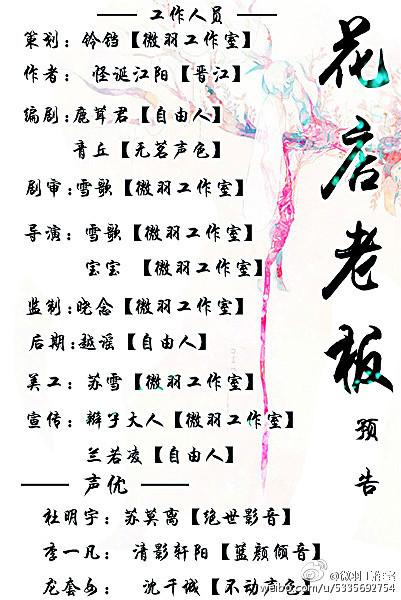 工作人员
策划：铃铛【微羽工作室】
作者：怪诞江阳【晋江】
编剧：鹿茸君【自由人】
青丘【无茗声色】
剧审：雪歌【微羽工作室】
导演：雪歌【微羽工作室】
宝宝【微羽工作室】
监制：晓念【微羽工作室】
后期：越谣【自由人】
美工：苏雪【微羽工作室】
宣传：辫子大人【微羽工作室】
兰若凌【自由人】
声优
杜明宇：苏莫离【绝世影音】
李一凡：清影轩阳【蓝颜倾音】
龙套女：沈千诚【不动声色】
花店老板
预告
@微羽工作室
weibo.com/u/5335692754